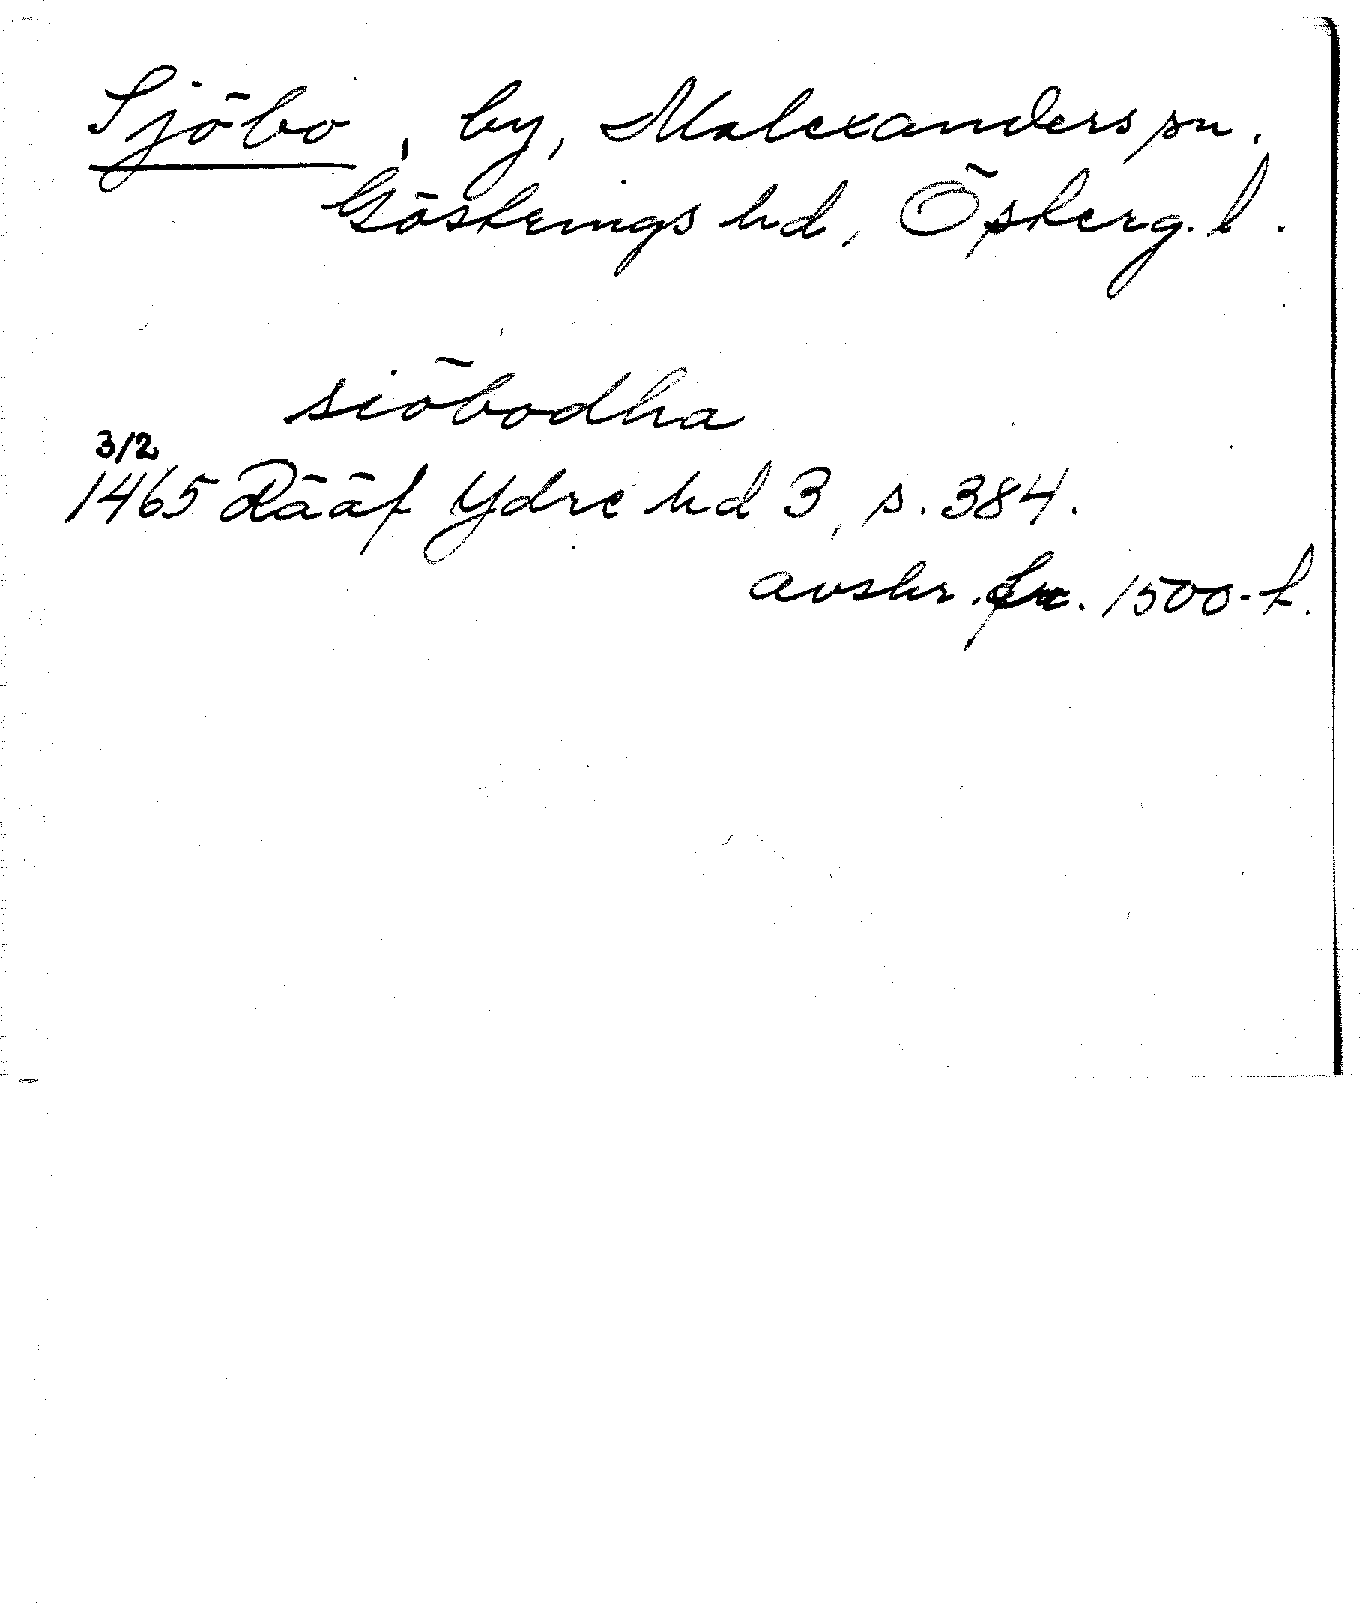 Sjöbo, by, Malexanders sn.
Göstrings hd, Österg. l.
siöbodha
3/2
1465 Rääf Ydre hd 3, s. 384.
avskr. fr. 1500-t.